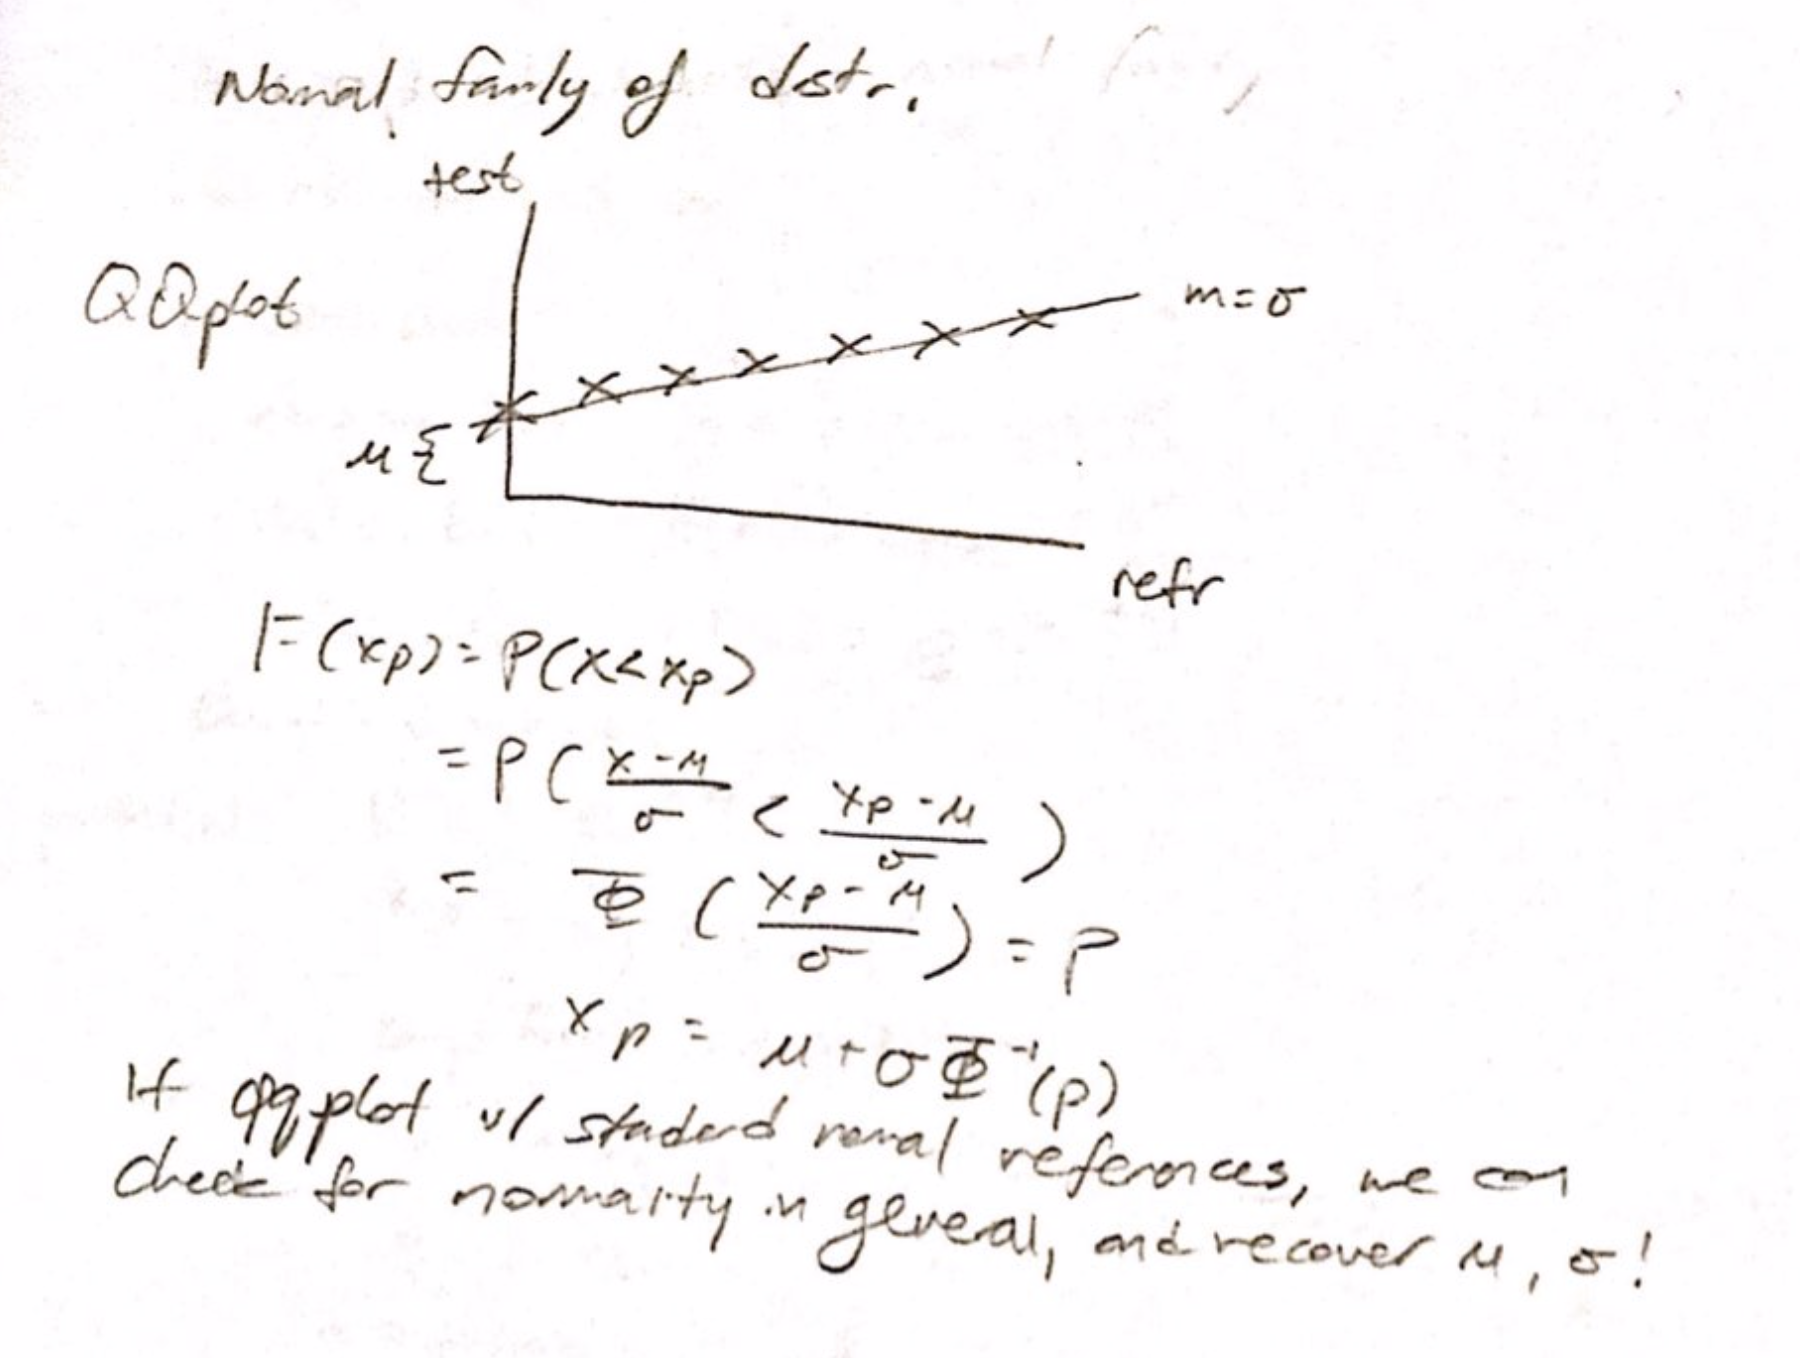 Normal family of distr.
test
QQplot
m=σ
μ{
refr
F(xp)=P(X<xp)
=P(X-μ/σ < xp-μ/σ)
= Φ(xp-μ/σ)=p
xp = μ+σΦ⁻¹(p)
If qqplot w/ standard normal references, we can
check for normality in general, and recover μ, σ!